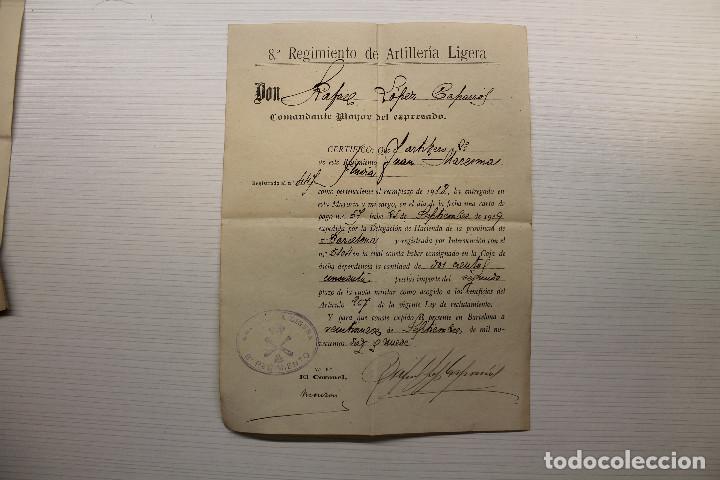 8.º Regimiento de Artillería Ligera
Don Rafael López Caparrós
Comandante Mayor del expresado.
CERTIFICO: Que el artillero 2º
de este Regimiento Juan Maresma
Registrado al n.º
como perteneciente al reemplazo de 1912, ha entregado en
esta Mayoría a mi cargo, en el día de la fecha una carta de
pago n.º 57 fecha de Septiembre de 1919
expedida por la Delegación de Hacienda de la provincia de
Barcelona y registrada por Intervención con el
n.º en la cual consta haber consignado en la Caja de
dicha dependencia la cantidad de dos cientas
cincuenta pesetas importe del segundo
plazo de la cuota militar como acogido a los beneficios del
Artículo 267 de la vigente Ley de reclutamiento.
Y para que conste expido el presente en Barcelona a
de Septiembre de mil no-
vecientos diez y nueve
8º REGIMIENTO
V.º B.º
El Coronel,
todocoleccion.net